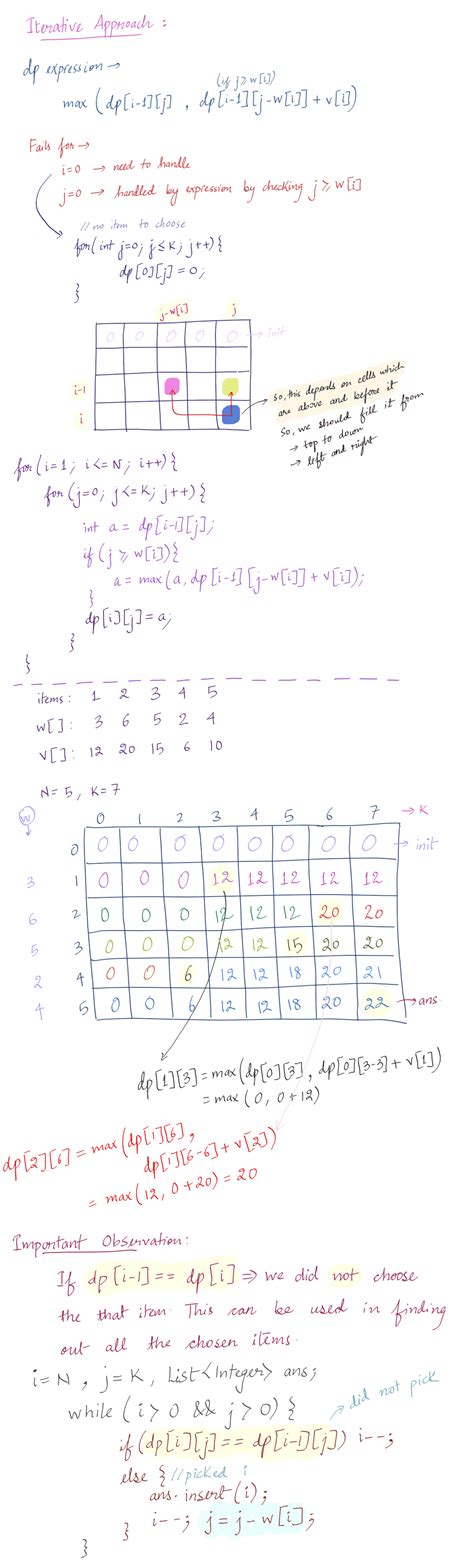 Iterative Approach :
dp expression →
(if j ≥ w[i])
max ( dp[i-1][j] , dp[i-1][j-w[i]] + v[i])
Fails for →
i=0 → need to handle
j=0 → handled by expression by checking j ≥ w[i]
// no item to choose
for( int j=0; j ≤ K; j++){
dp[0][j] = 0;
}
j-w[i] j
0 0 0 0 0 → init
i-1
i
So, this depends on cells which
are above and before it
So, we should fill it from
→ top to down
→ left and right
for(i=1; i<=N; i++){
for(j=0; j<=K; j++){
int a = dp[i-1][j];
if (j ≥ w[i]){
a = max(a, dp[i-1][j-w[i]] + v[i]);
}
dp[i][j]=a;
}
}
items: 1 2 3 4 5
w[]: 3 6 5 2 4
v[]: 12 20 15 6 10
N=5, K=7
w 0 1 2 3 4 5 6 7 → K
0 0 0 0 0 0 0 0 0 → init
3 1 0 0 0 12 12 12 12 12
6 2 0 0 0 12 12 12 20 20
5 3 0 0 0 12 12 15 20 20
2 4 0 0 6 12 12 18 20 21
4 5 0 0 6 12 12 18 20 22 → ans
dp[1][3] = max(dp[0][3], dp[0][3-3] + v[1])
= max (0, 0+12)
dp[2][6] = max(dp[1][6],
dp[1][6-6] + v[2])
= max(12, 0+20) = 20
Important Observation:
If dp[i-1] == dp[i] ⇒ we did not choose
the that item. This can be used in finding
out all the chosen items.
i=N , j=K, List<Integer> ans;
while (i>0 && j>0) {
did not pick
if (dp[i][j] == dp[i-1][j]) i--;
else { //picked i
ans.insert(i);
i--; j=j-w[i];
}
}